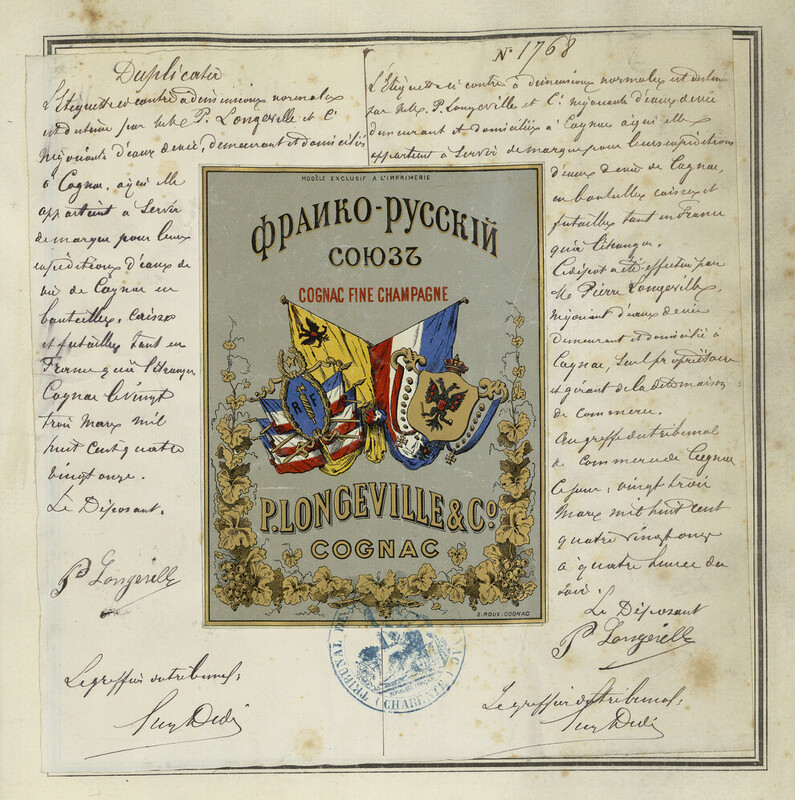 Duplicata
L'Etiquette ci contre à dimensions normales
est destinée par M.M. P. Longeville et Cie
négociants d'eaux de vie, demeurant et domiciliés
à Cognac, à qui elle
appartient à servir
de marque pour leurs
expéditions d'eaux de
vie de Cognac en
bouteilles, caisses
et futailles tant en
France qu'à l'étranger
Cognac le vingt
trois Mars mil
huit cent quatre
vingt onze.
Le Déposant.
P Longeville
Le greffier du tribunal,
N° 1768
L'Etiquette ci contre à dimensions normales est destinée
par M.M. P. Longeville et Cie négociants d'eaux de vie
demeurant et domiciliés à Cognac à qui elle
appartient à servir de marque pour leurs expéditions
d'eaux de vie de Cognac,
en bouteilles caisses et
futailles tant en France
qu'à l'étranger.
Ce dépôt a été effectué par
Mr Pierre Longeville,
négociant d'eaux de vie
demeurant et domicilié à
Cognac, seul propriétaire
et gérant de la dite maison
de commerce.
Au greffe du tribunal
de Commerce de Cognac
ce jour, vingt trois
Mars mil huit cent
quatre vingt onze
à quatre heures du
soir.
Le Déposant
P Longeville
Le greffier du tribunal,
MODÈLE EXCLUSIF A L'IMPRIMERIE
ФРАИКО-РУССКІЙ
СОЮЗЪ
COGNAC FINE CHAMPAGNE
R F
P. LONGEVILLE & Co
COGNAC
E. ROUX. COGNAC
TRIBUNAL DE
(CHARENTE)